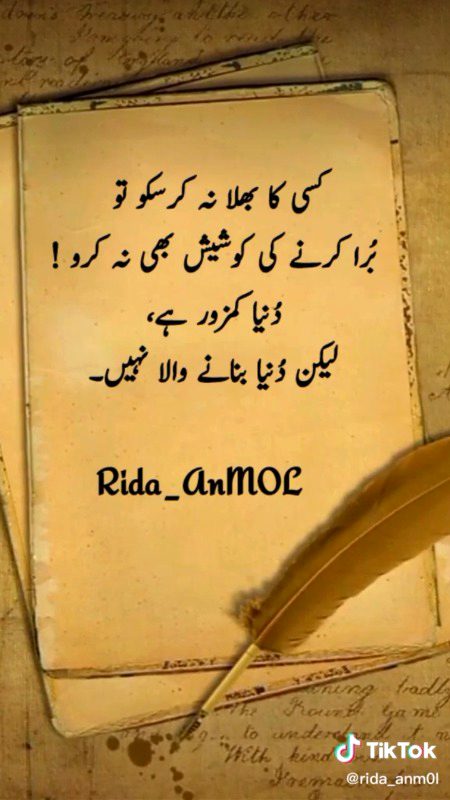 کسی کا بھلا نہ کرسکو تو
بُرا کرنے کی کوشیش بھی نہ کرو !
دُنیا کمزور ہے،
لیکن دُنیا بنانے والا نہیں۔
Rida_AnMOL
TikTok
@rida_anm0l